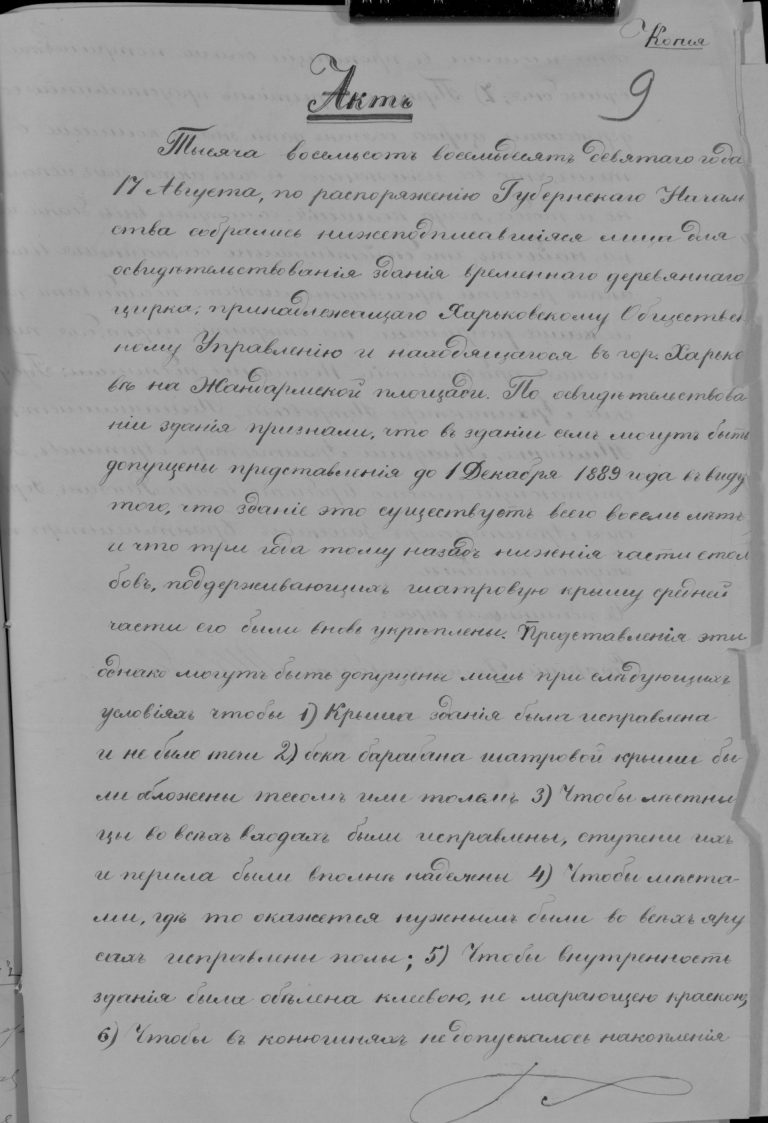 Копия
9
Актъ
Тысяча восемьсотъ восемьдесятъ девятаго года
17 Августа, по распоряженію Губернскаго Началь
ства собрались нижеподписавшіяся лица для
освидѣтельствованія зданія временнаго деревяннаго
цирка, принадлежащаго Харьковскому Обществен
ному Управленію и находящагося въ гор. Харько
вѣ на Жандармской площади. По освидѣтельствова
ніи зданія признали, что въ зданіи семъ могутъ быть
допущены представленія до 1 Декабря 1889 года въ виду
того, что зданіе это существуетъ всего восемь лѣтъ
и что три года тому назадъ нижнія части стол
бовъ, поддерживающихъ шатровую крышу средней
части его были вновь укрѣплены. Представленія эти
однако могутъ быть допущены лишь при слѣдующихъ
условіяхъ чтобы 1) Крыша зданія была исправлена
и не было течи 2) бока барабана шатровой крыши бы-
ли обложены тесомъ или толемъ 3) Чтобы лѣстни
цы во всѣхъ входахъ были исправлены, ступени ихъ
и перила были вполнѣ надежны 4) Чтобы мѣста-
ми, гдѣ то окажется нужнымъ были во всѣхъ яру
сахъ исправлены полы; 5) Чтобы внутренность
зданія была обѣлена клеевою, не марающею краскою;
6) Чтобы въ конюшняхъ не допускалось накопленія